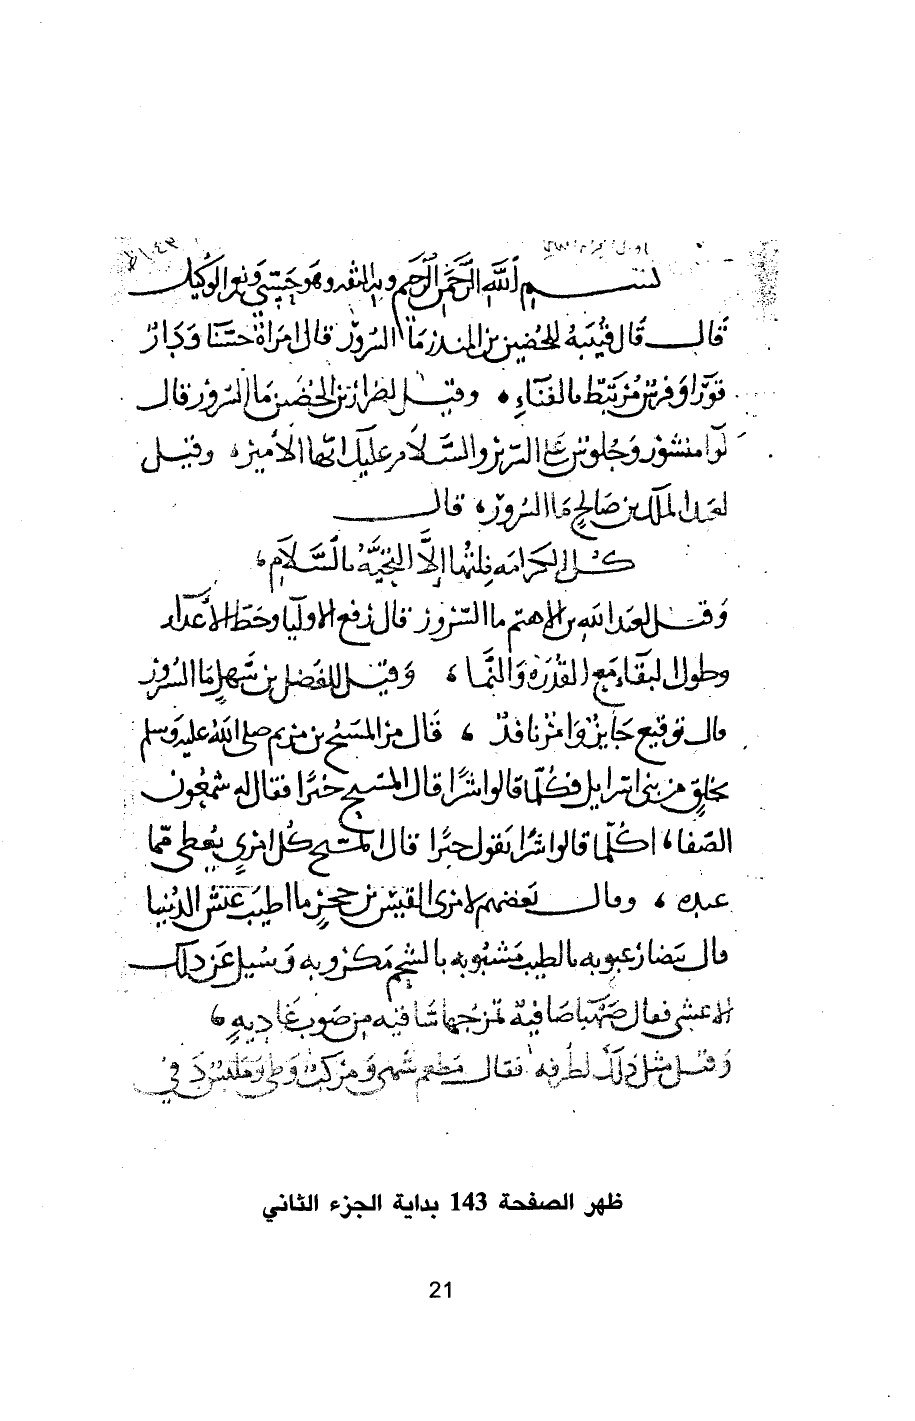 اول الجزء الثاني
بسم الله الرحمن الرحيم وبه الثقه وهو حسبي ونعم الوكيل
قال قال قتيبة للحضين بن المنذر ما السرور قال امراة حسنا ودار
قورا وفرس مرتبط بالفناء وقيل لضرار بن الحضين ما السرور قال
لوا منشور وجلوس على السرير والسلام عليك ايها الامير وقيل
لعبد الملك بن صالح ما السرور قال
كل الكرامه نلتها إلا التحية بالسلام
وقيل لعبد الله بن الاهتم ما السرور قال رفع الاوليا وحط الأعداء
وطول البقاء مع القدرة والنما وقيل للفضل بن سهل ما السرور
قال توقيع جايز وامر نافذ قال مر المسيح بن مريم صلى الله عليه وسلم
بخلق من بني اسرايل فكلما قالوا شرا قال المسيح خيرا فقال له شمعون
الصفا اكلما قالوا شرا تقول خيرا قال المسيح كل امرئ يعطي مما
عنده وقال بعضهم لامرئ القيس بن حجر ما اطيب عيش الدنيا
قال بيضا رعبوبه بالطيب مشبوبه بالشحم مكروبه وسيل عن ذلك
الاعشى فقال صهبا صافية تمزجها ساقيه من صوب غاديه
وقيل مثل ذلك لطرفه فقال مطعم شهي ومركب وطي وملبس دفي
ظهر الصفحة 143 بداية الجزء الثاني
21